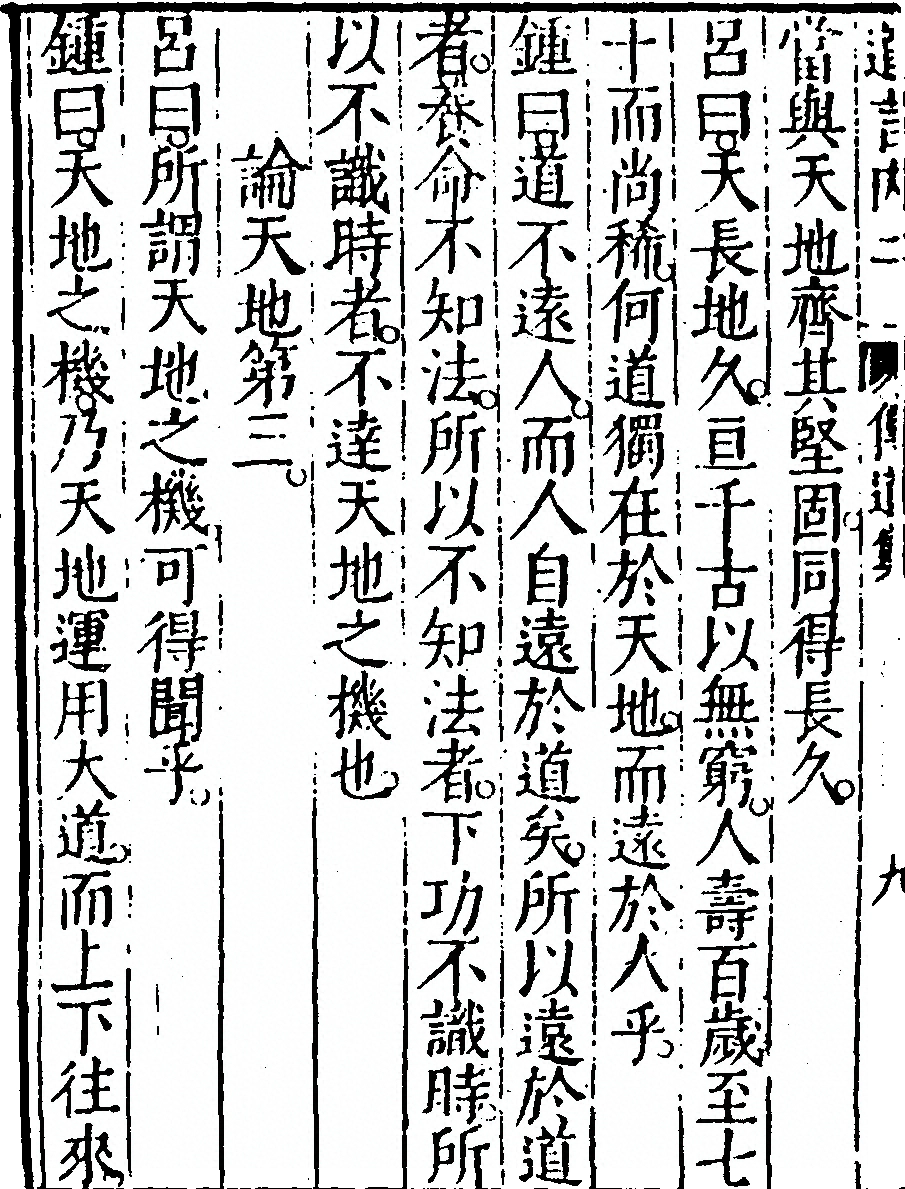 當與天地齊其堅固同得長久。
呂曰。天長地久。亘千古以無窮。人壽百歲至七
十而尚稀。何道獨在於天地。而遠於人乎。
鍾曰。道不遠人。而人自遠於道矣。所以遠於道
者。養命不知法。所以不知法者。下功不識時。所
以不識時者。不達天地之機也。
論天地第三。
呂曰。所謂天地之機可得聞乎。
鍾曰。天地之機。乃天地運用大道。而上下往來